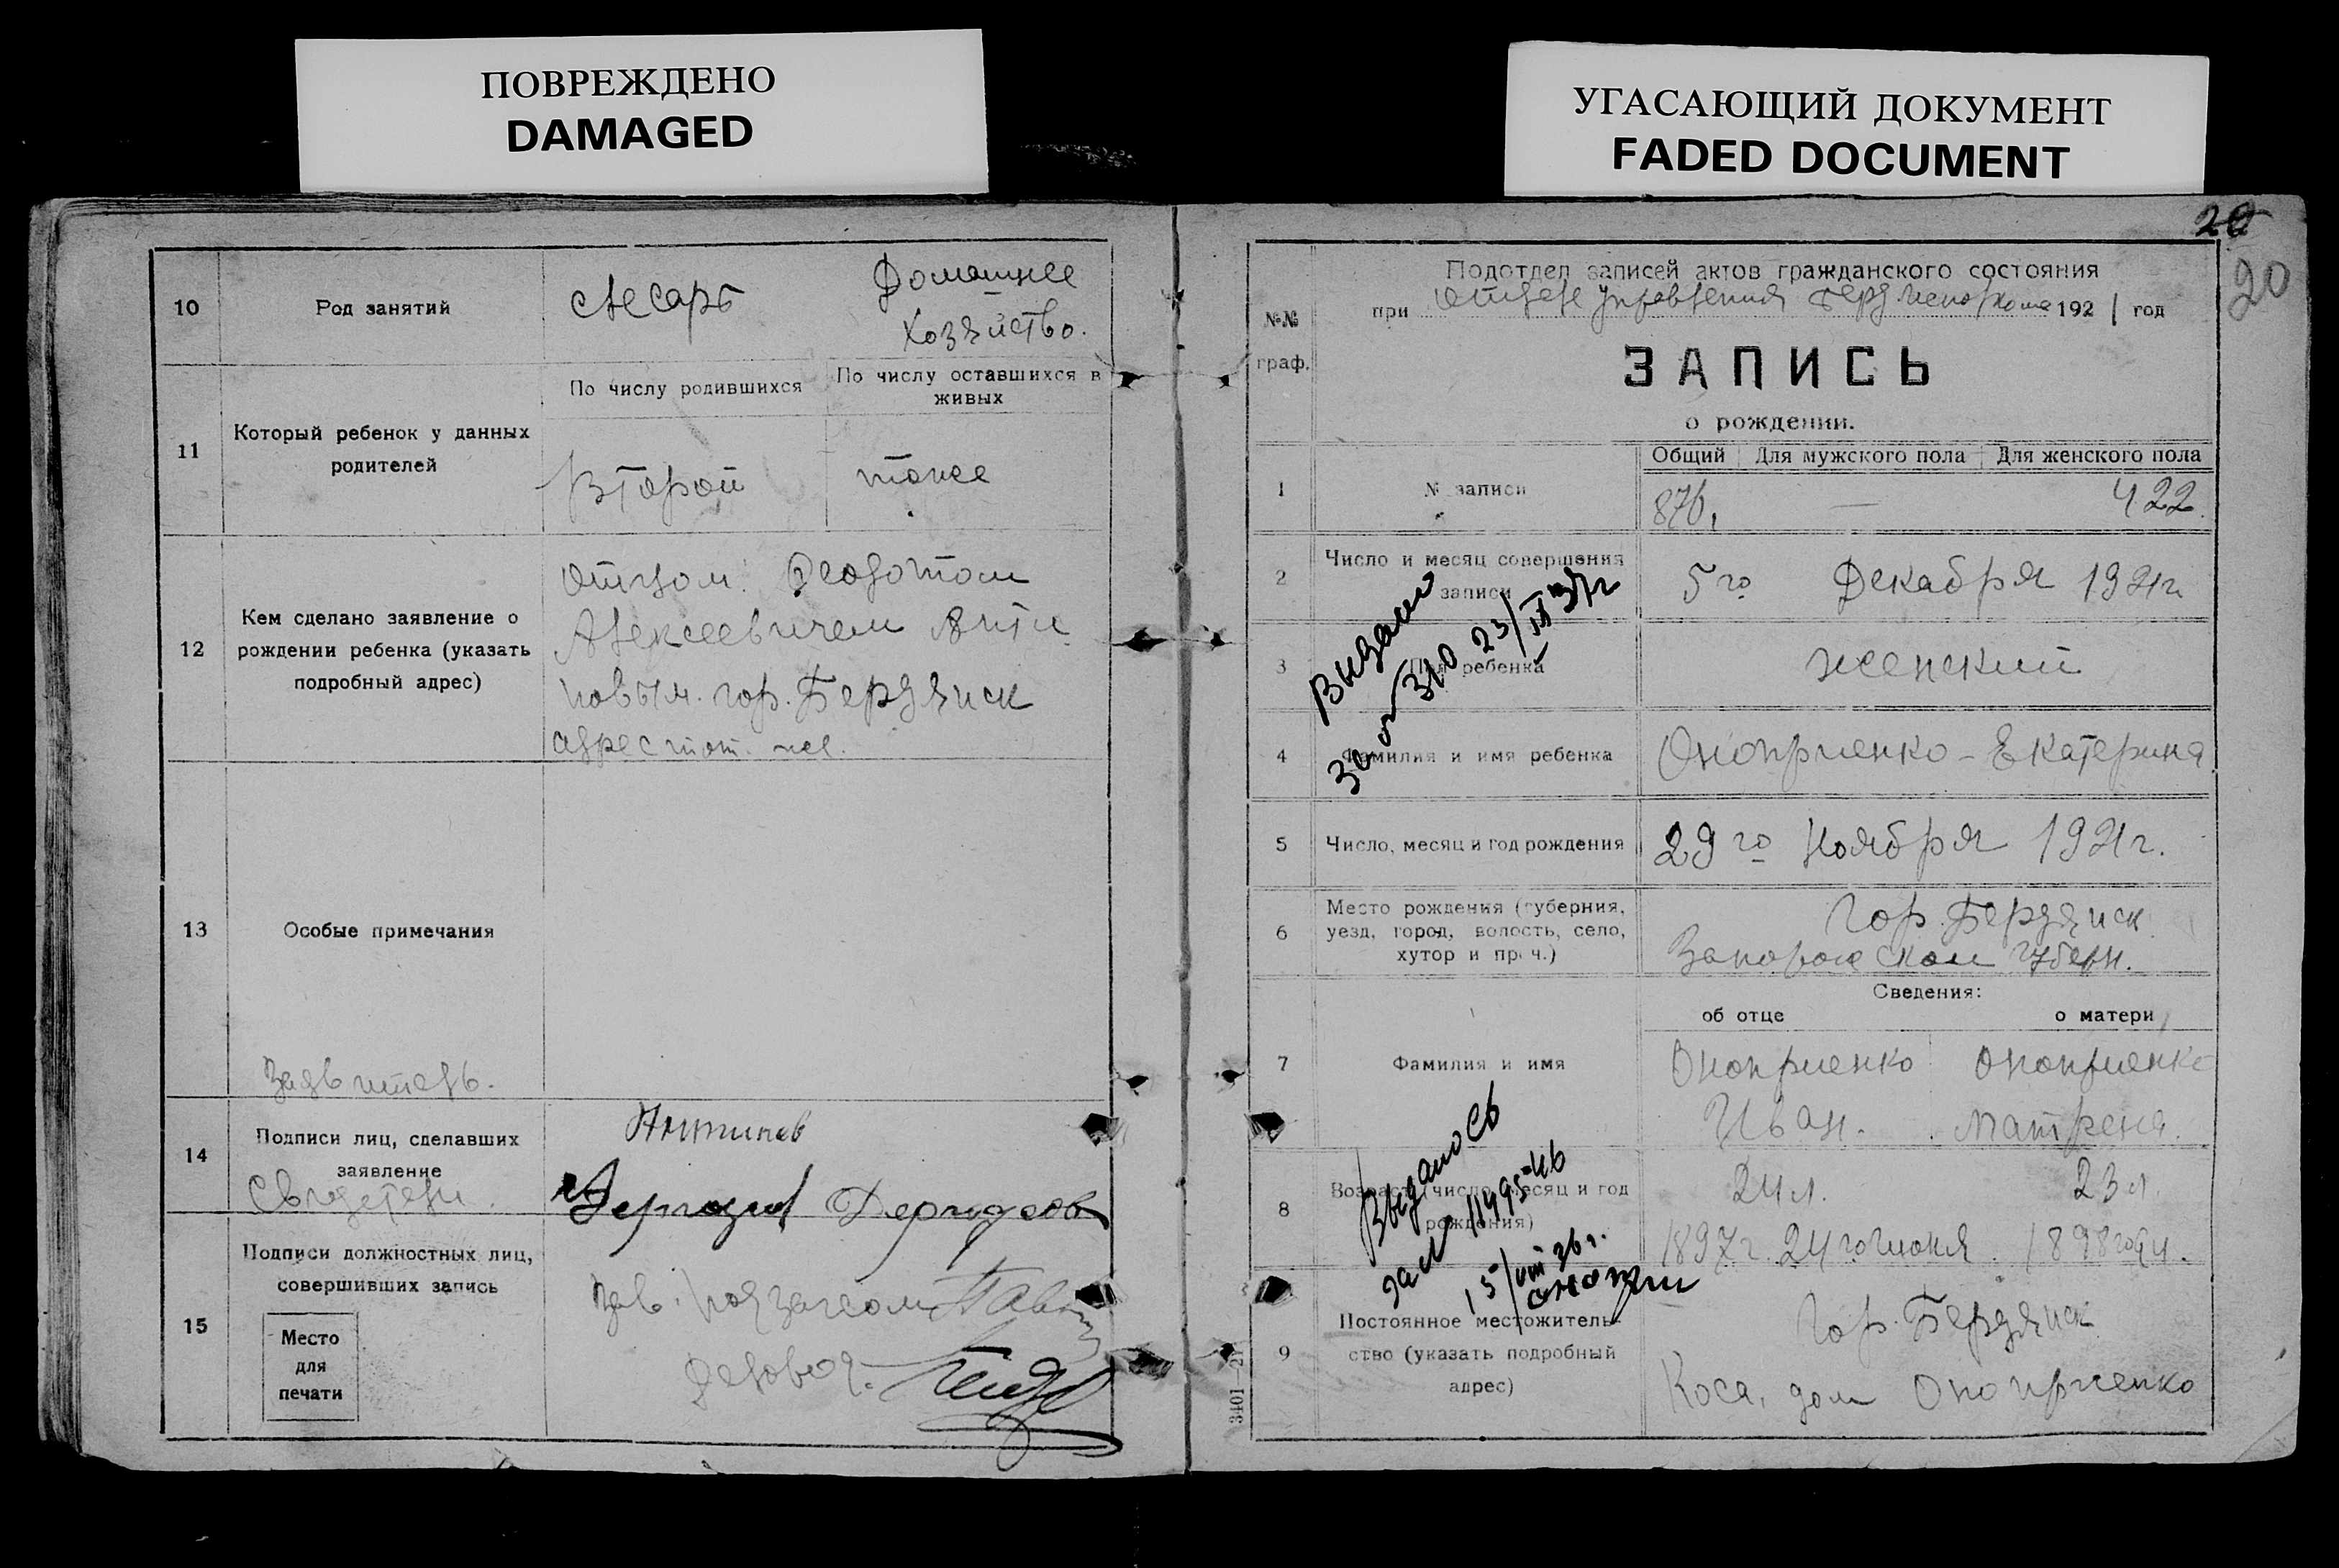 ПОВРЕЖДЕНО
DAMAGED
10
Род занятий
Слесарь
Домашнее
хозяйство.
11
Который ребенок у данных
родителей
По числу родившихся
По числу оставшихся в
живых
Второй
тоже
12
Кем сделано заявление о
рождении ребенка (указать
подробный адрес)
отцом: Феодотом
Алексеевичем Анти
повым. гор. Бердянск
адрес тот. же.
13
Особые примечания
Заявитель.
14
Подписи лиц, сделавших
заявление
Свидетели.
Антипов
15
Подписи должностных лиц,
совершивших запись
Место
для
печати
Зав. Подзагсом
Деловод.
УГАСАЮЩИЙ ДОКУМЕНТ
FADED DOCUMENT
20
20
№№
граф.
Подотдел записей актов гражданского состояния
при Отделе Управления 192 1 год
ЗАПИСЬ
о рождении.
Общий Для мужского пола Для женского пола
1
№ записи
876, — 422.
2
Число и месяц совершения
записи
5го Декабря 1921г.
3
Пол ребенка
женский
Выдано
за № 310 23/III 37г
4
Фамилия и имя ребенка
Оноприенко - Екатерина
5
Число, месяц и год рождения
29го Ноября 1921г.
6
Место рождения (губерния,
уезд, город, волость, село,
хутор и проч.)
Гор. Бердянск
Запорожской губерн.
Сведения:
об отце
о матери
7
Фамилия и имя
Оноприенко
Иван.
Оноприенко
Матрена.
8
Возраст (число, месяц и год
рождения)
24 л.
23 л.
1897 г. 24 го Июня. 1898
Выдалось
за № 11495-46
15/VIII 36 г.
9
Постоянное местожитель-
ство (указать подробный
адрес)
Гор. Бердянск
Коса, дом Оноприенко
3401—21